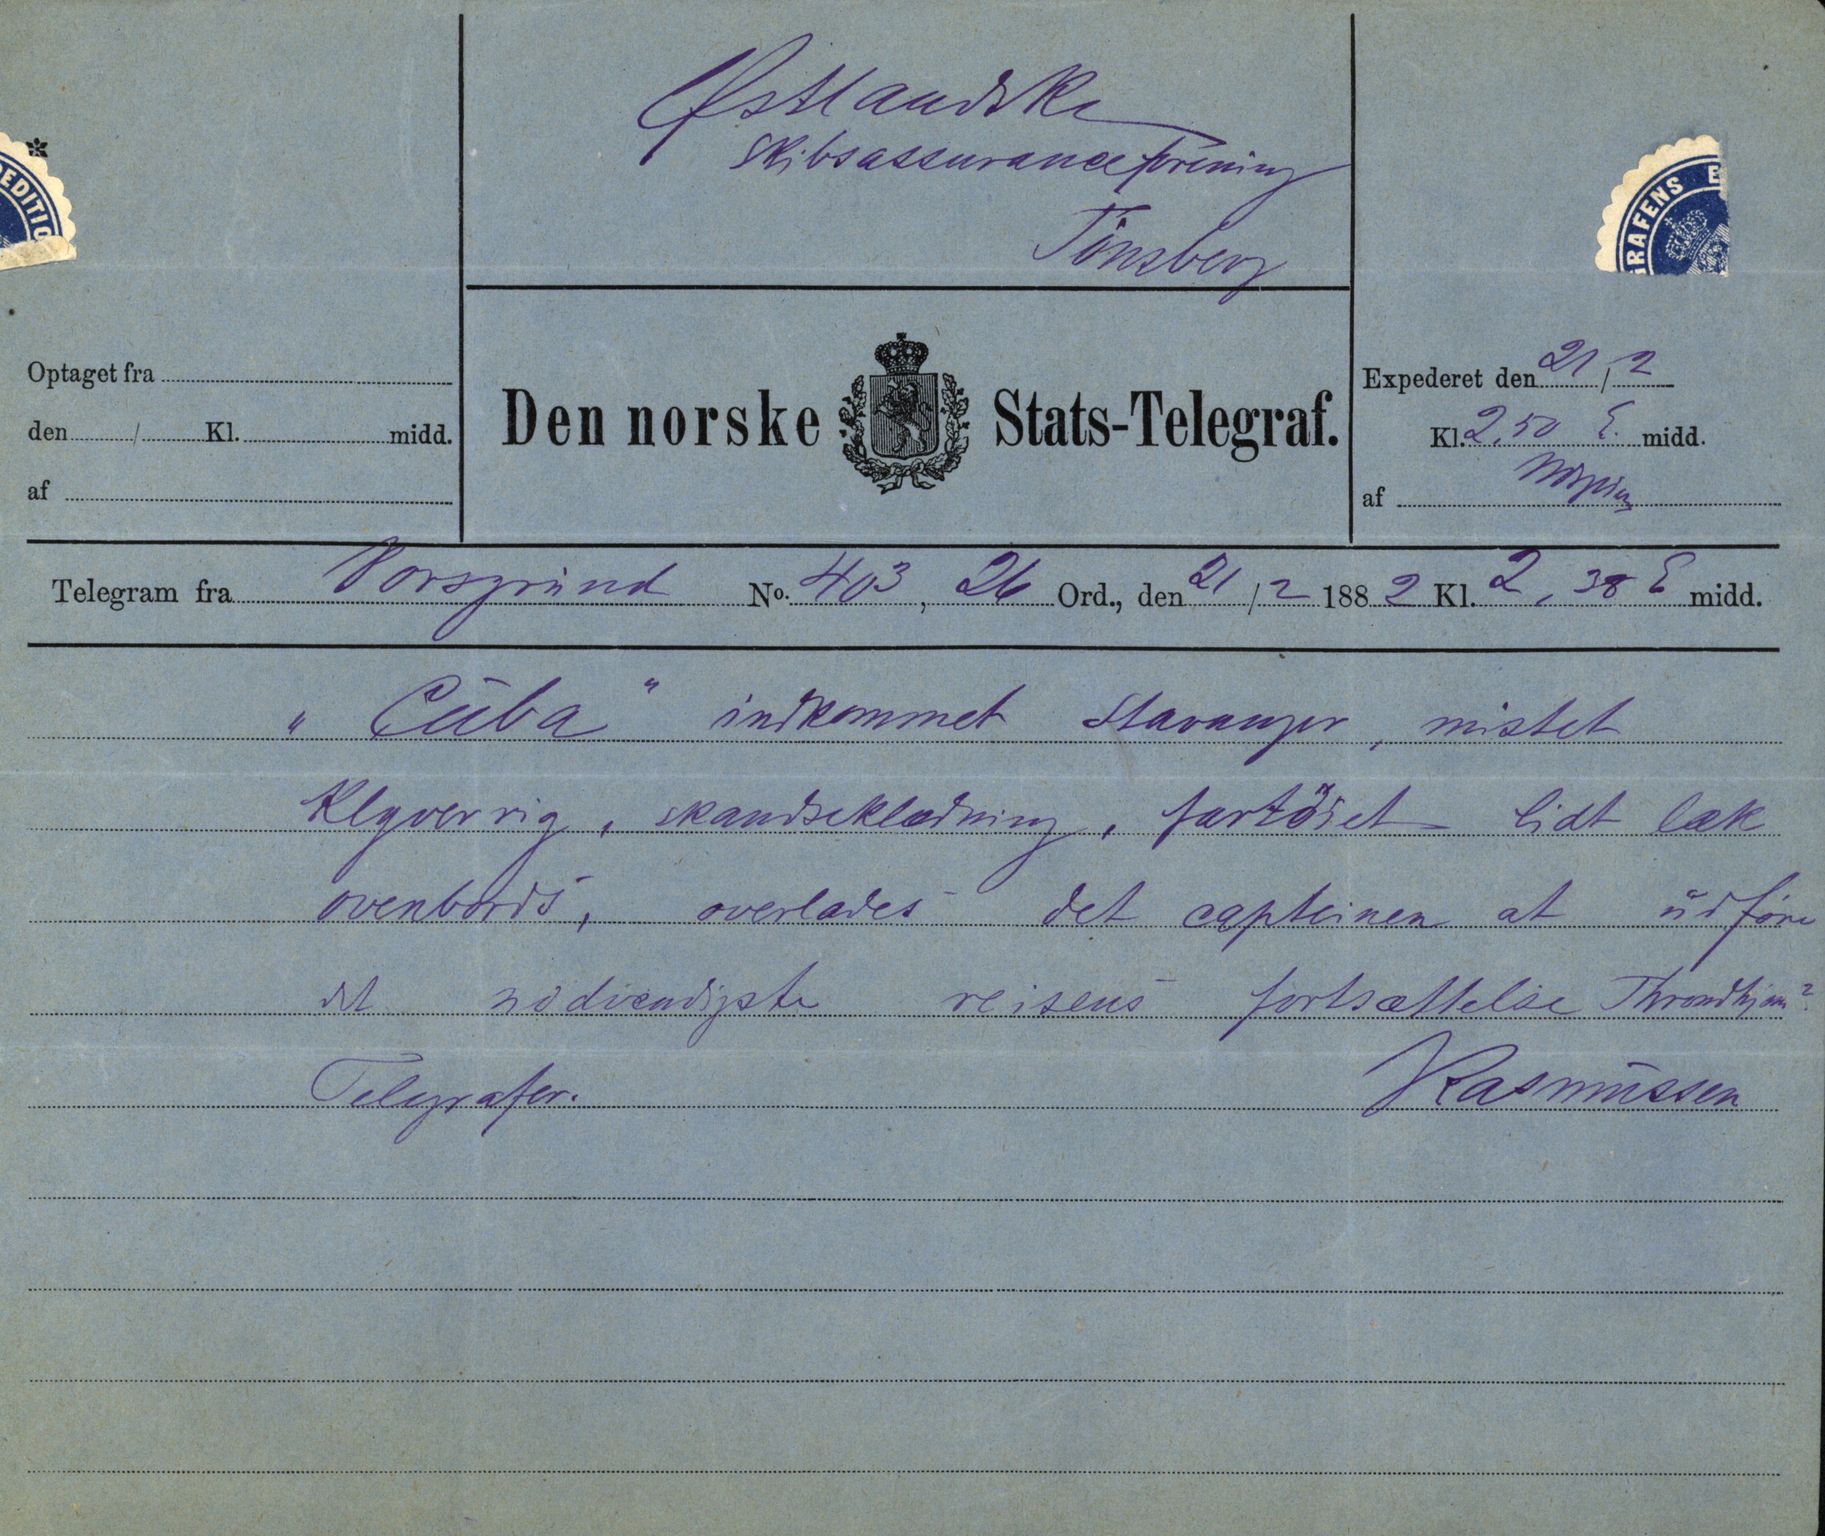 Østlandske
Skibsassuranceforening
Tönsberg
EDITIO
GRAFENS E
Optaget fra
den / Kl. midd.
af
Den norske Stats-Telegraf.
Expederet den 21/2
Kl. 2,50 E. midd.
af
Telegram fra Porsgrund No. 403, 26 Ord., den 21/2 1882 Kl. 2,38 E midd.
„Cuba“ indkommet Stavanger, mistet
Klyverrig, skandseklædning, fartöiet lidt læk
ovenbords, overlades det capteinen at udföre
det nödvendigste reisens fortsættelse Throndhjem?
Telegrafer. Rasmussen